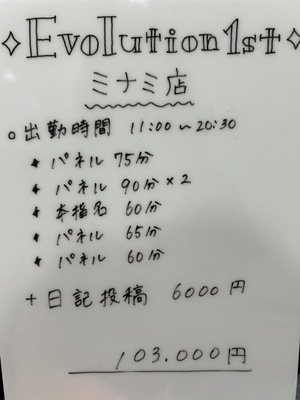 ✧Evolution1st✧
ミナミ店
○出勤時間 11:00~20:30
★ パネル 75分
★ パネル 90分×2
★ 本指名 60分
★ パネル 65分
★ パネル 60分
+日記投稿 6000円
103.000円